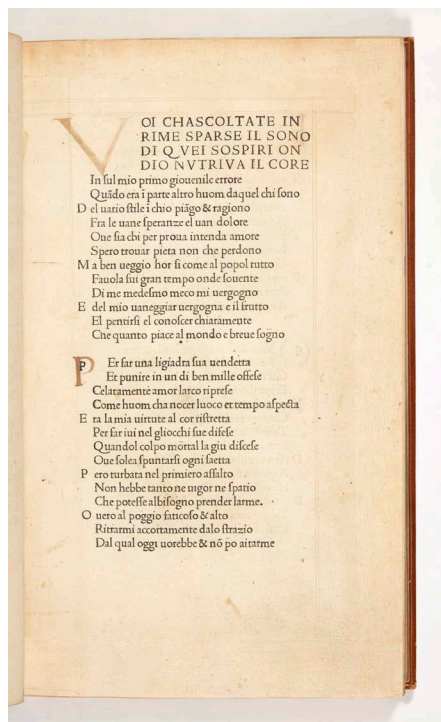 VOI CHASCOLTATE IN
RIME SPARSE IL SONO
DI QVEI SOSPIRI ON
DIO NVTRIVA IL CORE
In ſul mio primo giouenile errore
Quãdo era ĩ parte altro huom daquel chi ſono
D el uario ſtile ĩ chio piãgo & ragiono
Fra le uane ſperanze el uan dolore
Oue ſia chi per proua intenda amore
Spero trouar pieta non che perdono
M a ben ueggio hor ſi come al popol tutto
Fauola fui gran tempo onde ſouente
Di me medeſmo meco mi uergogno
E del mio uaneggiar uergogna e il frutto
El pentirſi el conoſcer chiaramente
Che quanto piace al mondo e breue ſogno
P Er far una ligiadra ſua uendetta
Et punire in un di ben mille offeſe
Celatamente amor larco ripreſe
Come huom cha nocer luoco et tempo aſpecta
E ra la mia uirtute al cor riſtretta
Per far iui nel gliocchi ſue difeſe
Quandol colpo mortal la giu diſceſe
Oue ſolea ſpuntarſi ogni ſaetta
P ero turbata nel primiero aſſalto
Non hebbe tanto ne uigor ne ſpatio
Che poteſſe albiſogno prender larme.
O uero al poggio faticoſo & alto
Ritrarmi accortamente dalo ſtrazio
Dal qual oggi uorebbe & nõ po aitarme